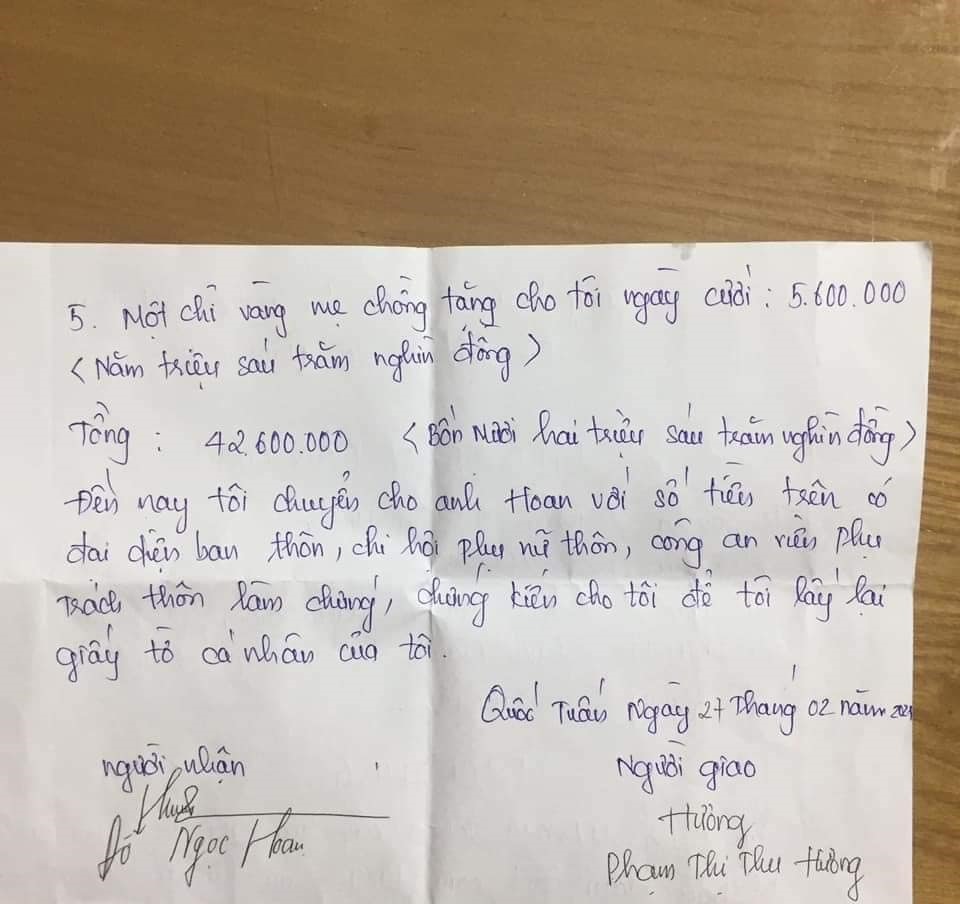 5. Một chỉ vàng mẹ chồng tặng cho tôi ngày cưới: 5.600.000
< Năm triệu sáu trăm nghìn đồng >
Tổng : 42.600.000 < Bốn Mươi hai triệu sáu trăm nghìn đồng >
Đến nay tôi chuyển cho anh Hoan với số tiền trên có
đại diện ban thôn, chi hội phụ nữ thôn, công an viên phụ
trách thôn làm chứng, chứng kiến cho tôi để tôi lấy lại
giấy tờ cá nhân của tôi.
Quốc Tuấn Ngày 27 Tháng 02 năm
người nhận Người giao
Hường
Đỗ Ngọc Hoan Phạm Thị Thu Hường